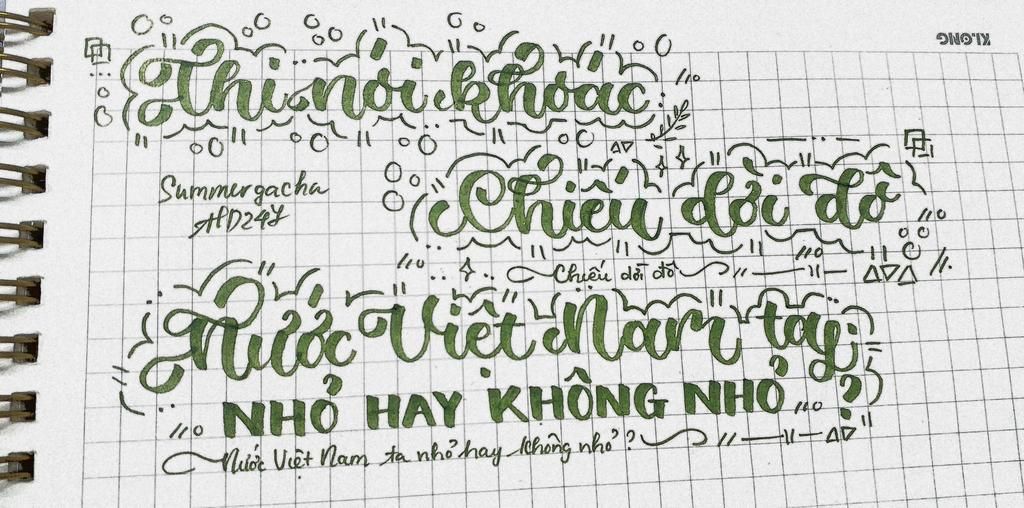 KLONG
Thi nói khoác
Summergacha
HD24Y
Chiếu dời đô
Chiếu dời đô
Nước Việt Nam tay
NHỎ HAY KHÔNG NHỎ ?
Nước Việt Nam ta nhỏ hay không nhỏ ?